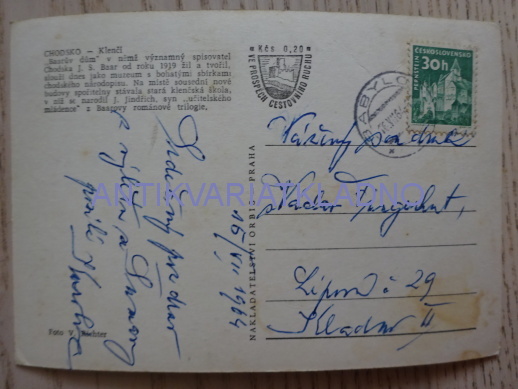 CHODSKO – Klenčí
„Baarův dům" v němž významný spisovatel
Chodska J. Š. Baar od roku 1919 žil a tvořil,
slouží dnes jako museum s bohatými sbírkami
chodského národopisu. Na místě sousední nové
budovy spořitelny stávala stará klenčská škola,
v níž se narodil J. Jindřich, syn „učitelského
mládence" z Baarovy románové trilogie.
Kčs 0,20
VE PROSPĚCH CESTOVNÍHO RUCHU
ČESKOSLOVENSKO
30h
PERNŠTEJN
BABYLON
Vážený pan
Václav
Lípová č 29
Kladno II
Srdečný pozdrav
z výletu
posílá
16/VII 1964
NAKLADATELSTVÍ ORBIS, PRAHA
Foto V. Richter
ANTIKVARIATKLADNO